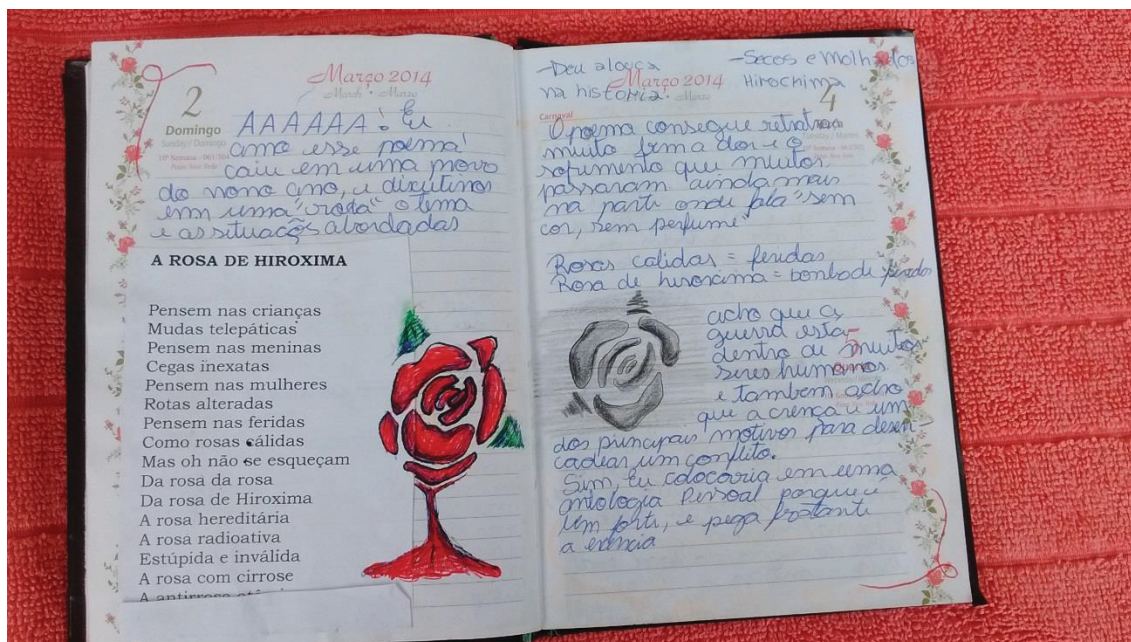 Março 2014
March • Marzo
2
Domingo
Sunday / Domingo
AAAAAA! Eu
amo esse poema!
caiu em uma prova
do nono ano, e discutimos
em uma "roda" o tema
e as situações abordadas
A ROSA DE HIROXIMA
Pensem nas crianças
Mudas telepáticas
Pensem nas meninas
Cegas inexatas
Pensem nas mulheres
Rotas alteradas
Pensem nas feridas
Como rosas cálidas
Mas oh não se esqueçam
Da rosa da rosa
Da rosa de Hiroxima
A rosa hereditária
A rosa radioativa
Estúpida e inválida
A rosa com cirrose
A antirrosa
-Deu a louca
na história
-Secos e Molhados
Hirochima
Março 2014
Marzo
4
Carnaval
O poema consegue retratar
muito a dor e o
sofrimento que muitos
passaram ainda mais
na parti onde fala "sem
cor, sem perfume"
Rosas calidas = feridas
Rosa de hiroxima = bomba de
acho que a
guerra esta
dentro de muitos
seres humanos
e tambem acho
que a crença e um
dos principais motivos para desen-
cadear um conflito.
Sim, Eu colocaria em uma
antologia Pessoal porque é
um forti, e pega
a